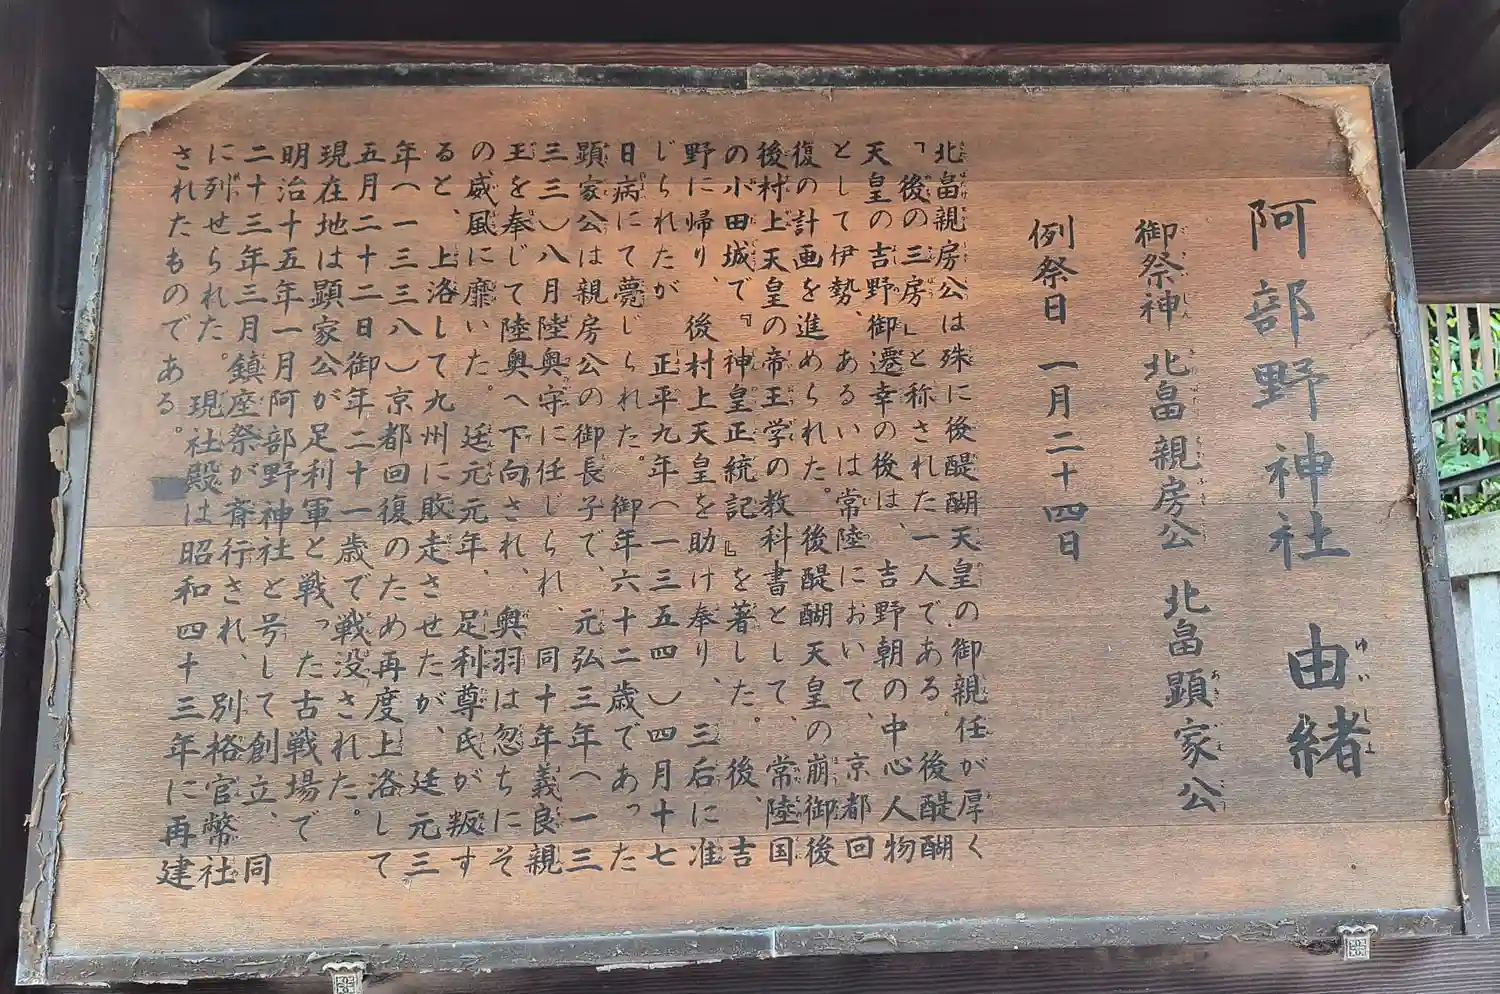 阿部野神社 由緒
御祭神 北畠親房公 北畠顕家公
例祭日 一月二十四日
北畠親房公は殊に後醍醐天皇の御親任が厚く
「後の三房」と称された一人である。後醍醐
天皇の吉野御遷幸の後は、吉野朝の中心人物
として伊勢、あるいは常陸において、京都回
復の計画を進められた。後醍醐天皇の崩御後
後村上天皇の帝王学の教科書として、常陸国
の小田城で『神皇正統記』を著した。後、吉
野に帰り、後村上天皇を助け奉り、三后に准
じられたが 正平九年(一三五四)四月十七
日病にて薨じられた。御年六十二歳であった
顕家公は親房公の御長子で、元弘三年(一三
三三)八月陸奥守に任じられ、同十年義良親
王を奉じて陸奥へ下向され、奥羽は忽ちにそ
の威風に靡いた。延元元年、足利尊氏が叛す
ると、上洛して九州に敗走させたが、延元三
年(一三三八)京都回復のため再度上洛して
五月二十二日御年二十一歳で戦没された。
現在地は顕家公が足利軍と戦った古戦場で
明治十五年一月阿部野神社と号して創立、同
二十三年三月鎮座祭が斎行され、別格官幣社
に列せられた。現社殿は昭和四十三年に再建
されたものである。